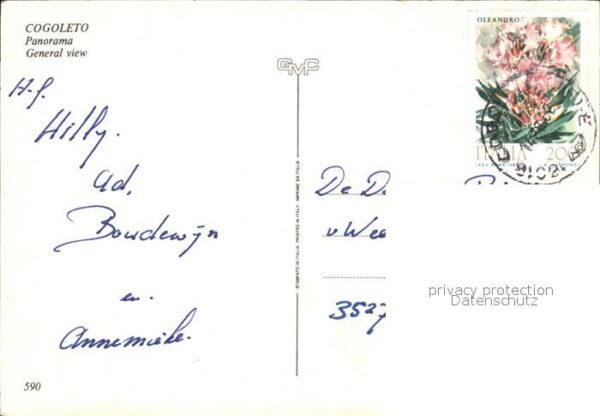 COGOLETO
Panorama
General view
H-g.
Hilly.
Ad.
Boudewijn
en.
Annemieke.
590
GMC
STAMPATO IN ITALIA PRINTED IN ITALY IMPRIMÉ EN ITALIE
OLEANDRO
ITALIA 200
De D
v Wee
3527
privacy protection
Datenschutz